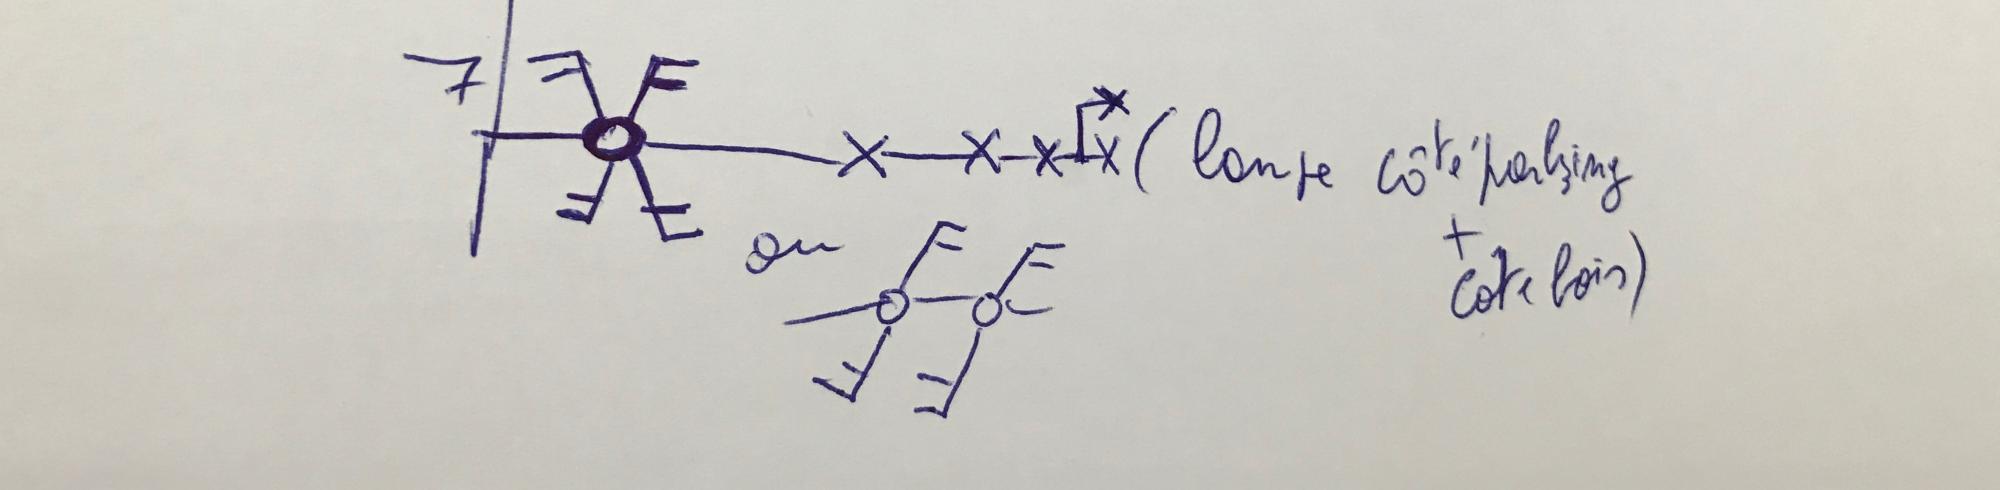 7
(lampe côté parking
ou
+
côté bois)